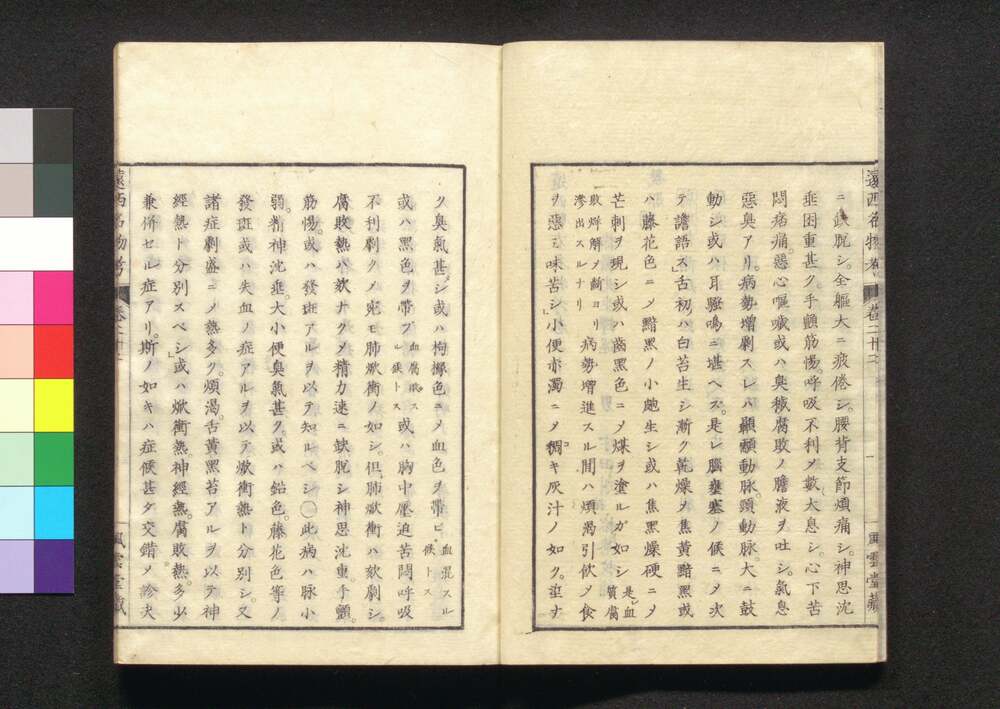 遠西名物考 卷二十二 風雲堂藏
ニ缺脫シ。全軀大ニ疲倦シ。腰背支節煩痛シ。神思沈
垂困重甚ク。手顫筋惕呼吸不利ノ數大息シ。心下苦
悶痞痛。惡心嘔噦或ハ臭穢腐敗ノ膽液ヲ吐シ。氣息
惡臭アリ。病勢增劇スレハ顳顬動脉。頸動脉。大ニ鼓
動シ或ハ耳騷鳴ニ堪ヘス。是レ腦壅塞ノ候ニ〆次
テ譫語ス」舌初ハ白苔生シ漸ク乾燥〆焦黃黯黑或
ハ藤花色ニ〆黯黑ノ小皰生シ或ハ焦黑燥硬ニ〆
芒刺ヲ現シ或ハ齒黑色ニ〆煤ヲ塗ルガ如シ 是レ血質腐
敗烊解ヲ齗ヨリ滲出スルナリ 病勢增進スル間ハ煩渴引飮〆食
ヲ惡ミ味苦シ」小便亦濁ニ〆稠キ灰汁ノ如ク。渣ナ
ク臭氣甚シ或ハ枸櫞色ニ〆血色ヲ帶ビ 血混スル候トス
或ハ黑色ヲ帶ブ 血腐敗スル候トス 或ハ胸中壓迫苦悶呼吸
不利劇ク〆宛モ肺焮衝ノ如シ。但肺焮衝ハ欬劇シ。
腐敗熱ハ欬ナク〆精力速ニ缺脫シ神思沈重。手顫。
筋惕。或ハ發斑アルヲ以テ知ルベシ○此病ハ脉小
弱。精神沈垂。大小便臭氣甚ク。或ハ鉛色。藤花色等ノ
發斑或ハ失血ノ症アルヲ以テ焮衝熱ト分別シ。又
諸症劇盛ニ〆熱多ク。煩渴。舌黃黑苔アルヲ以テ神
經熱ト分別スベシ」或ハ焮衝熱神經熱。腐敗熱。多少
兼併セル症アリ。斯ノ如キハ症候甚タ交錯〆診夬
遠西名物考 卷二十二 風雲堂藏